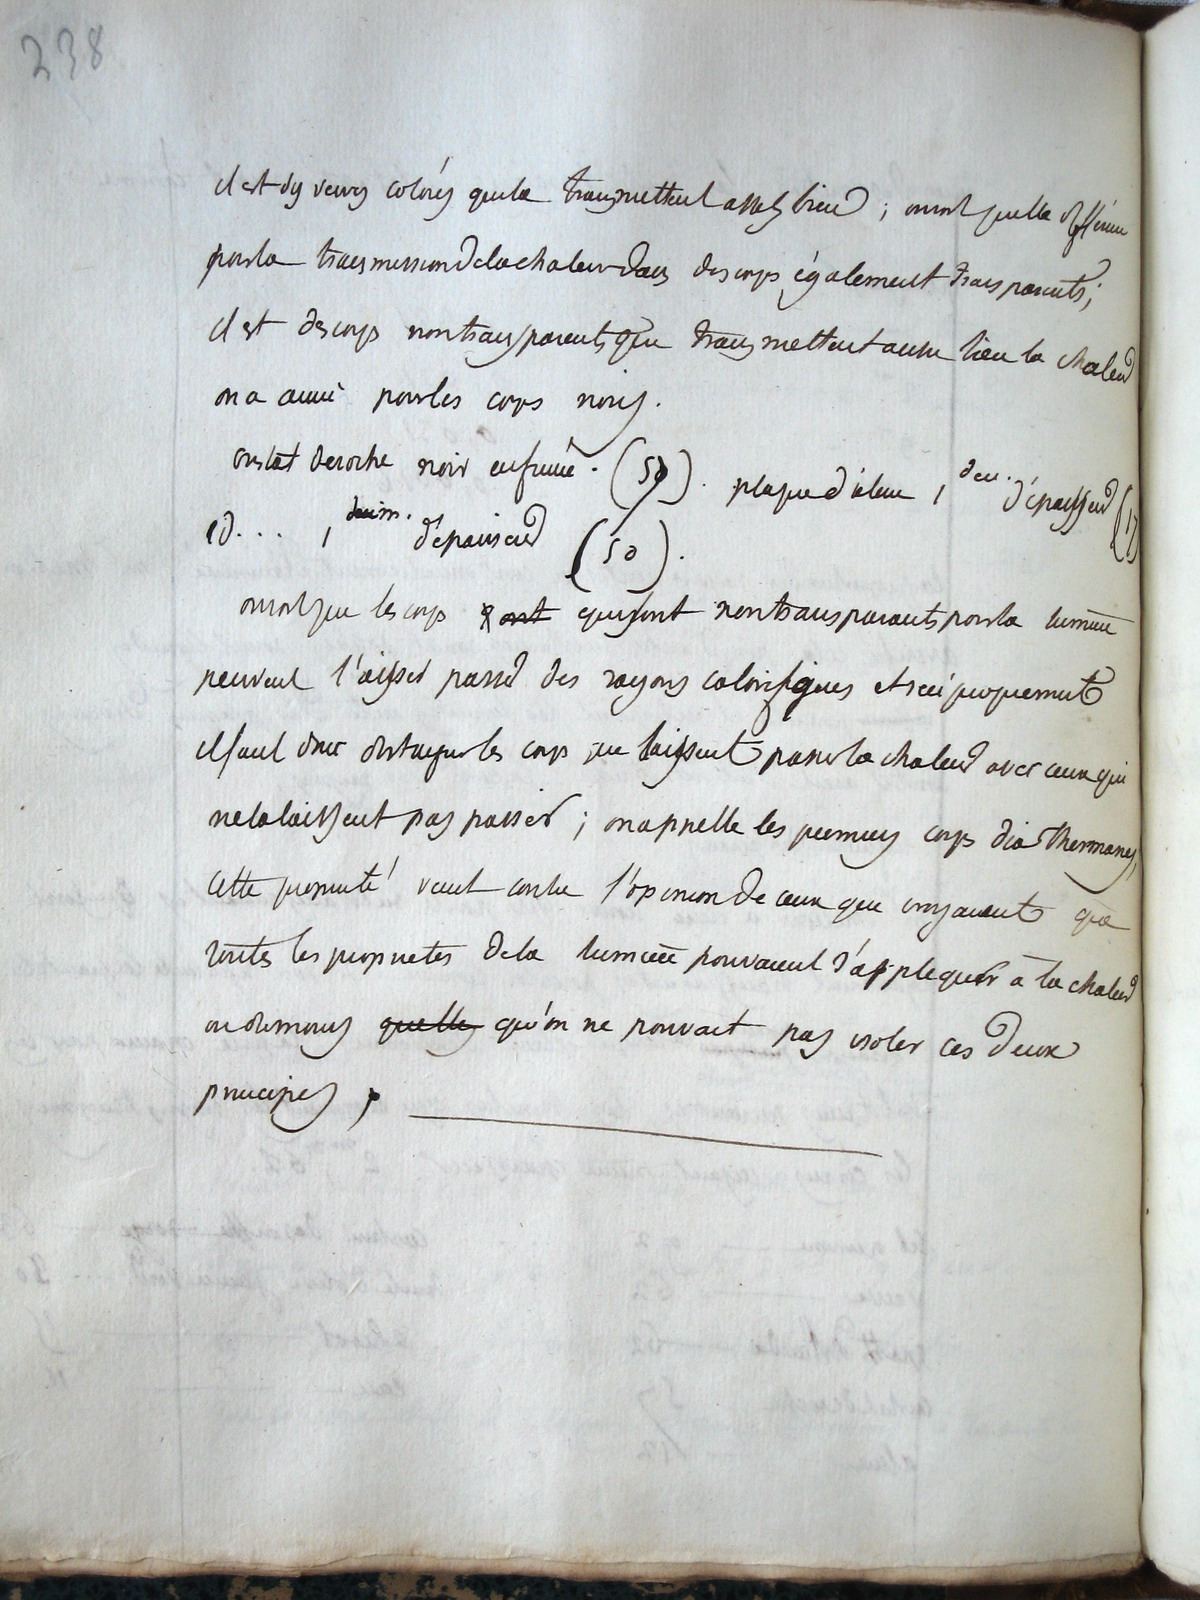 238
il est des verres colorés qui la transmettent assez bien ; on voit quelle différence
pour la transmission de la chaleur dans des corps également transparents ;
il est des corps non transparents qui transmettent aussi bien la chaleur
on a aussi pour les corps noirs.
cristal de roche noir enfumé. (50). plaque d'alun 1 d'épaisseur (17
id... 1 décim. d'épaisseur (50).
on voit que les corps qui sont non transparents pour la lumière
peuvent laisser passer des rayons calorifiques et réciproquement
il faut donc distinguer les corps qui laissent passer la chaleur avec ceux qui
ne la laissent pas passer ; on appelle les premiers corps diathermanes,
cette propriété vient contre l'opinion de ceux qui croyaient que
toutes les propriétés de la lumière pouvaient s'appliquer à la chaleur
ou du moins quelles qu'on ne pouvait pas isoler ces deux
principes ;